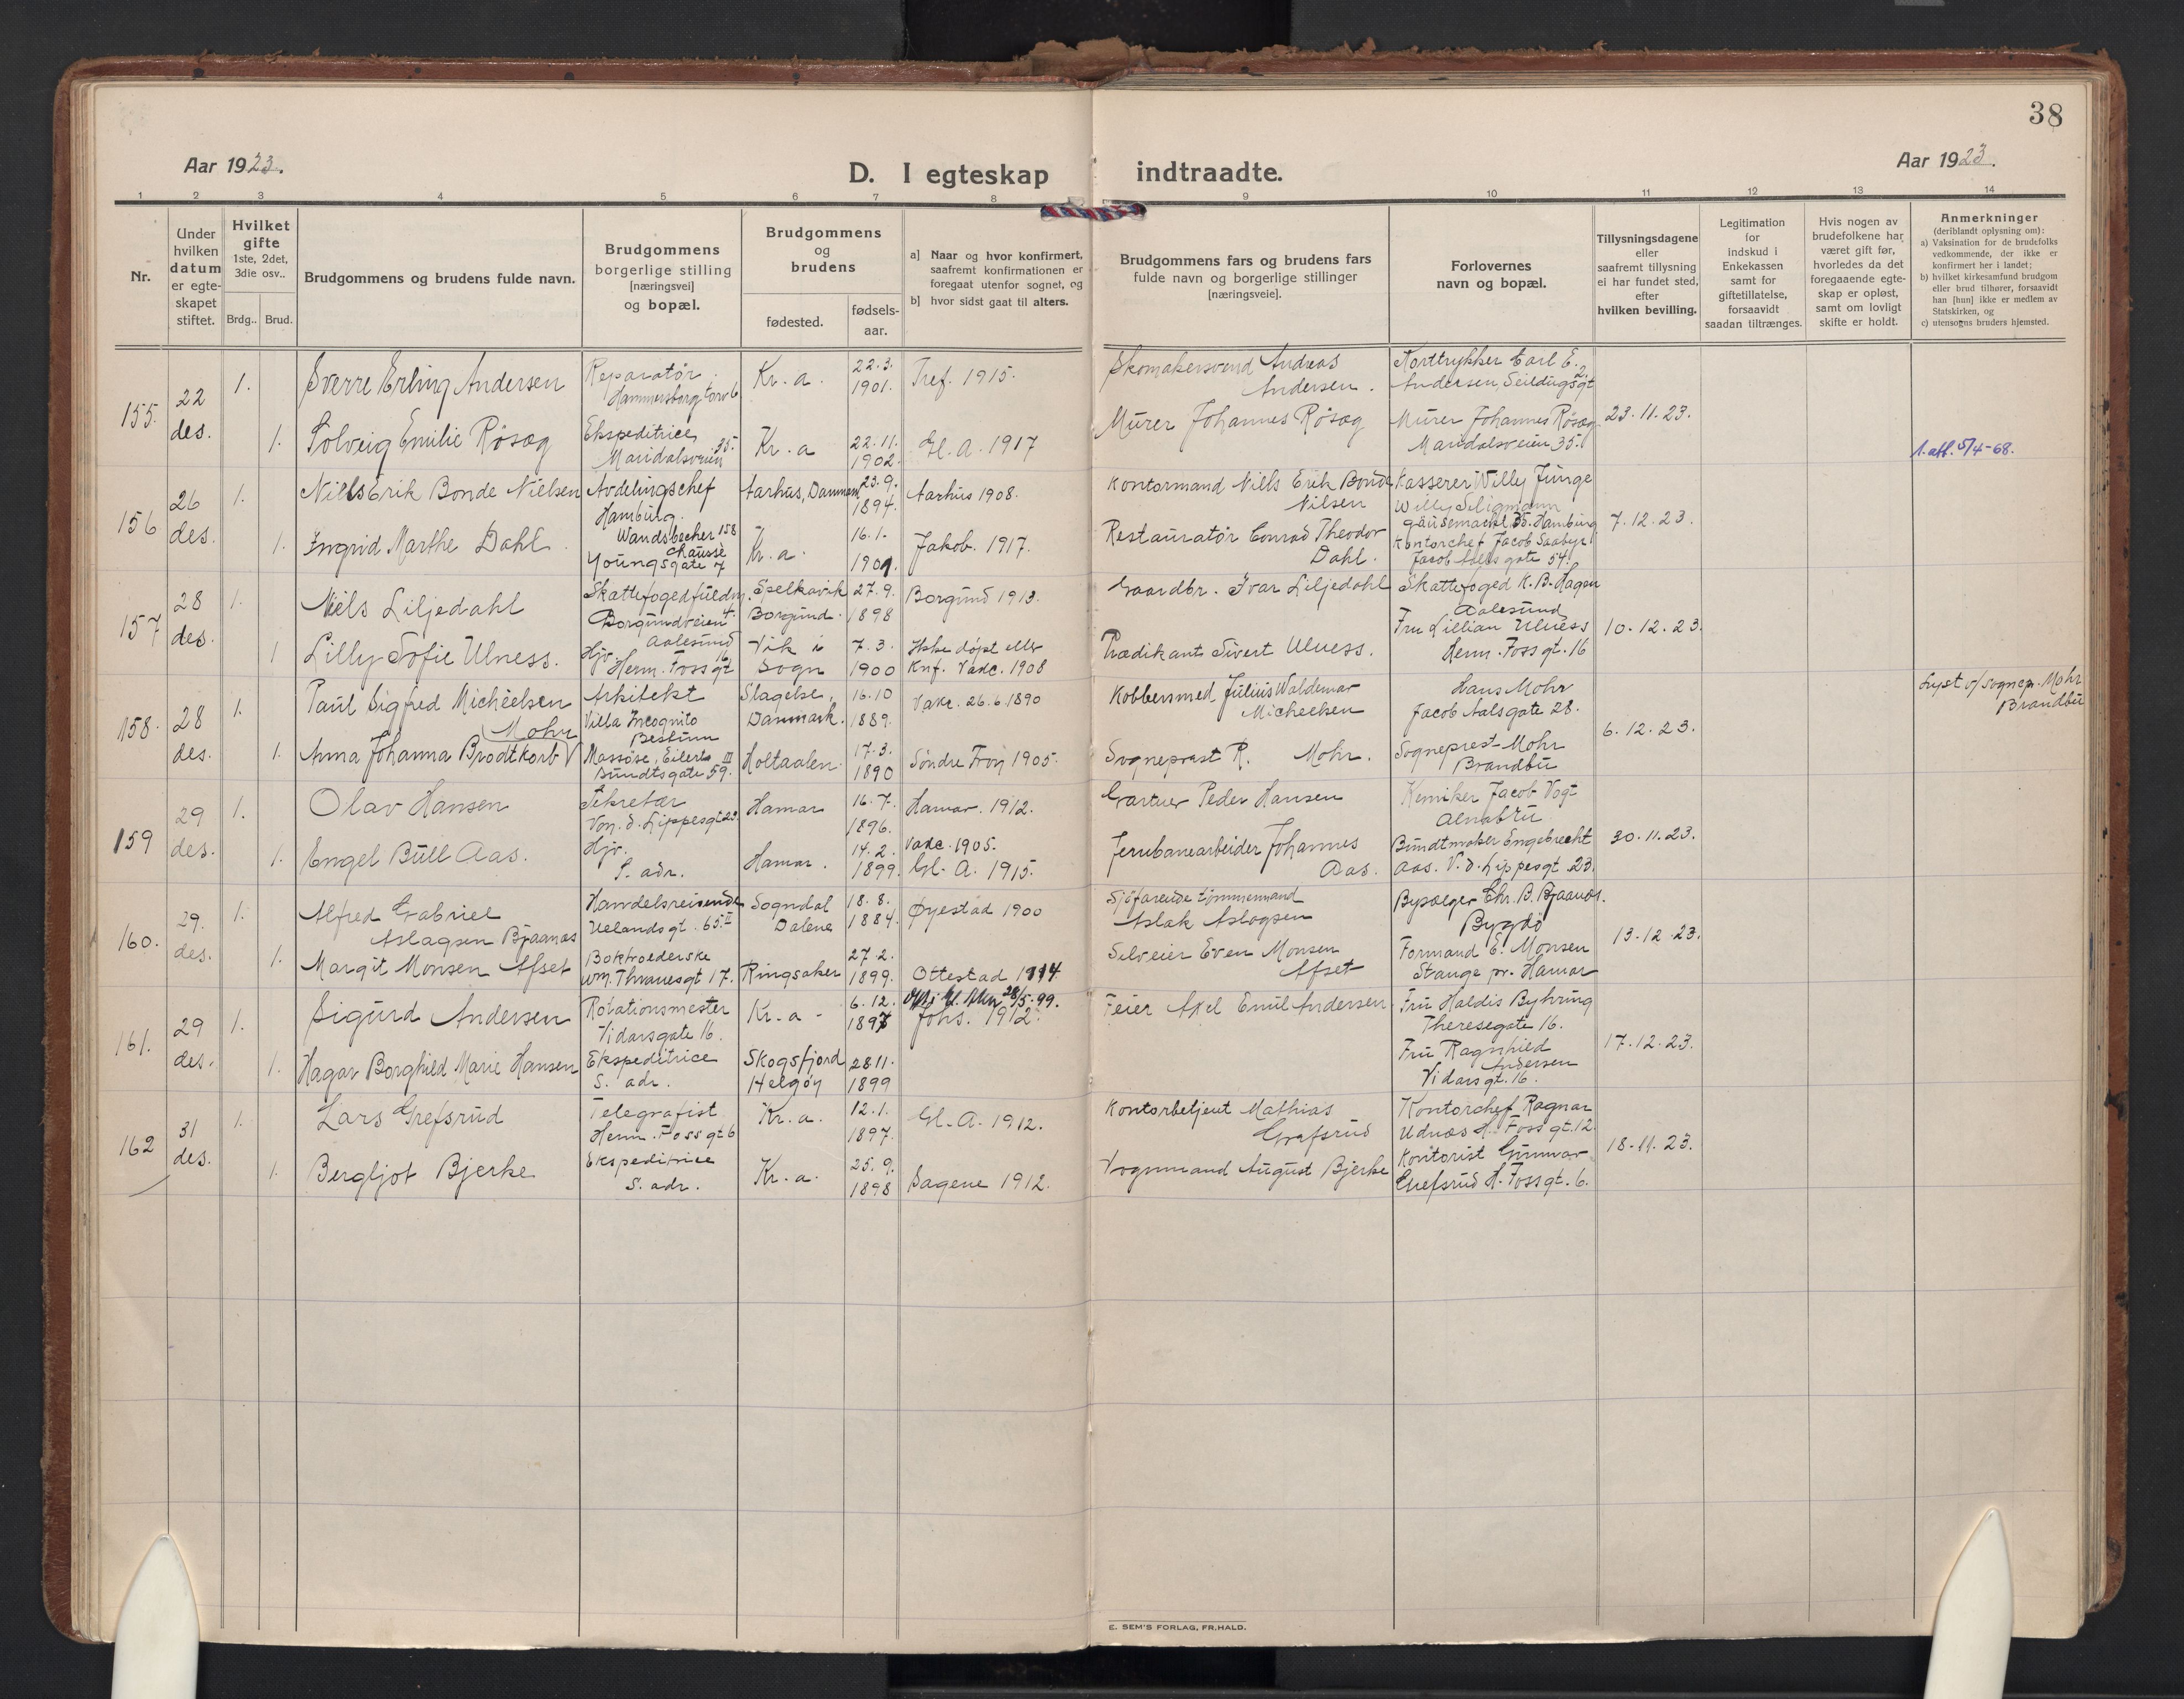 38
Aar 1923.
D. I egteskap indtraadte.
Aar 1923.
1 2 3 4 5 6 7 8 9 10 11 12 13 14
Nr.
Under hvilken datum er egte-skapet stiftet.
Hvilket gifte 1ste, 2det, 3die osv..
Brdg.. Brud.
Brudgommens og brudens fulde navn.
Brudgommens borgerlige stilling [næringsvei] og bopæl.
Brudgommens og brudens
fødested.
fødsels-aar.
a] Naar og hvor konfirmert, saafremt konfirmationen er foregaat utenfor sognet, og
b] hvor sidst gaat til alters.
Brudgommens fars og brudens fars fulde navn og borgerlige stillinger [næringsveie].
Forlovernes navn og bopæl.
Tillysningsdagene eller saafremt tillysning ei har fundet sted, efter hvilken bevilling.
Legitimation for indskud i Enkekassen samt for giftetillatelse, forsaavidt saadan tiltrænges.
Hvis nogen av brudefolkene har været gift før, hvorledes da det foregaaende egte-skap er opløst, samt om lovligt skifte er holdt.
Anmerkninger (deriblandt oplysning om):
a) Vaksination for de brudefolks vedkommende, der ikke er konfirmert her i landet;
b) hvilket kirkesamfund brudgom eller brud tilhører, forsaavidt han [hun] ikke er medlem av Statskirken, og
c) utensogns bruders hjemsted.
155. 22 des.
1. Sverre Erling Andersen
Reparatør. Hammersborg torv 6
Kr.a. 22.3. 1901. Tref. 1915.
Skomakersvend Andreas Andersen.
Korttrykker Carl E. Andersen, Seildugsgt 2.
1. Solveig Emilie Røsæg
Ekspeditrice Maridalsveien 35.
Kr.a 22.11. 1902. Gl.A. 1917
Murer Johannes Røsæg
Murer Johannes Røsæg Maridalsveien 35.
23.11.23.
1.att. 5/4-68.
156 26 des.
1. Niels Erik Bonde Nielsen
Avdelingschef Hamburg. Wandsbecher 158 Chaussè
Aarhus, Danmark 23.9. 1894. Aarhus 1908.
Kontormand Niels Erik Bonde Nilsen
Kasserer Willy Junge
Willy Seligmann
35. Hamburg
1. Ingrid Marthe Dahl.
Youngsgate 7
Kr.a. 16.1. 1901. Jakob. 1917.
Restauratør Conrad Theodor Dahl.
Kontorchef Jacob Saabye Jacob Aalls gate 54.
7.12.23.
157 28 des.
1. Niels Liljedahl
Skattefogedfuldm. Borgundveien 4 Aalesund
Spelkavik Borgund. 27.9. 1898 Borgund 1913.
Gaardbr. Ivar Liljedahl
Skattefoged K.B. Hagen Aalesund
1 Lilly Sofie Ulness.
Hjv. Herm. Foss gt 16
Vik i Sogn 7.3. 1900 Ikke døpt eller Knf. Vakc. 1908
Prædikant Sivert Ulness.
Fru Lillian Ulness Herm. Foss gt. 16
10.12.23.
158. 28 des.
1. Paul Sigfred Micheelsen
Arkitekt Villa Incognito Bestum
Slagelse, Danmark. 16.10 1889. Vakc. 26.6.1890
Kobbersmed Julius Waldemar Micheelsen
Hans Mohr Jacob Aalsgate 28.
1. Anna Johanna Brodtkorb Mohr
Massøse, Eilert Sundtsgate 59. III
Holtaalen. 17.3. 1890 Søndre Frøy 1905.
Sogneprest R. Mohr.
Sogneprest Mohr Brandbu
6.12.23.
Lyst v/ sognepr. Mohr Brandbu
159 29 des.
1. Olav Hansen
Sekretær Von. d. Lippesgt 23
Hamar 16.7. 1896. Hamar. 1912.
Gartner Peder Hansen
Kemiker Jacob Vogt Alnabru
1. Engel Bull Aas.
Hjv. S. adr.
Hamar. 14.2. 1899. Vakc. 1905. Gl.A. 1915.
Jernbanearbeider Johannes Aas.
Bundtmaker Engebrecht Aas. V.d. Lippesgt 23.
30.11.23.
160. 29. des.
1. Alfred Gabriel Aslagsen Bjaanæs
Handelsreisende Uelandsgt. 65. II
Sogndal Dalene 18.8. 1884. Øyestad 1900
Sjøfarende tømmermand Aslak Aslagsen
Bysælger Chr. B. Bjaanæs. Bygdø
1. Margit Monsen Afset
Boktrederske Wm. Thranesgt 17.
Ringsaker 27.2. 1899. Ottestad 1914
Selveier Even Monsen Afset
Formand E. Monsen Stange pr. Hamar
13.12.23.
161. 29 des.
1. Sigurd Andersen
Rotationsmester Vidarsgate 16.
Kr.a. 6.12. 1897 28/5.99. Johs. 1912.
Feier Axel Emil Andersen.
Fru Haldis Byhring Theresegate 16.
1. Hagar Borghild Marie Hansen
Ekspeditrice S. adr.
Skogsfjord Helgøy 28 11. 1899
Fru Ragnhild Andersen Vidarsgt. 16.
17.12.23.
162 31 des.
1. Lars Grefsrud
Telegrafist Herm. Foss gt 6
Kr.a. 12.1. 1897. Gl.A. 1912.
Kontorbetjent Mathias Grefsrud
Kontorchef Ragnar Udnæs H. Foss gt. 12
1. Bergljot Bjerke
Ekspeditrice S. adr.
Kr.a. 25.9. 1898 Sagene 1912.
Vognmand August Bjerke
Kontorist Gunnar Grefsrud H. Foss gt. 6.
18.11.23.
E. SEM'S FORLAG, FR.HALD.